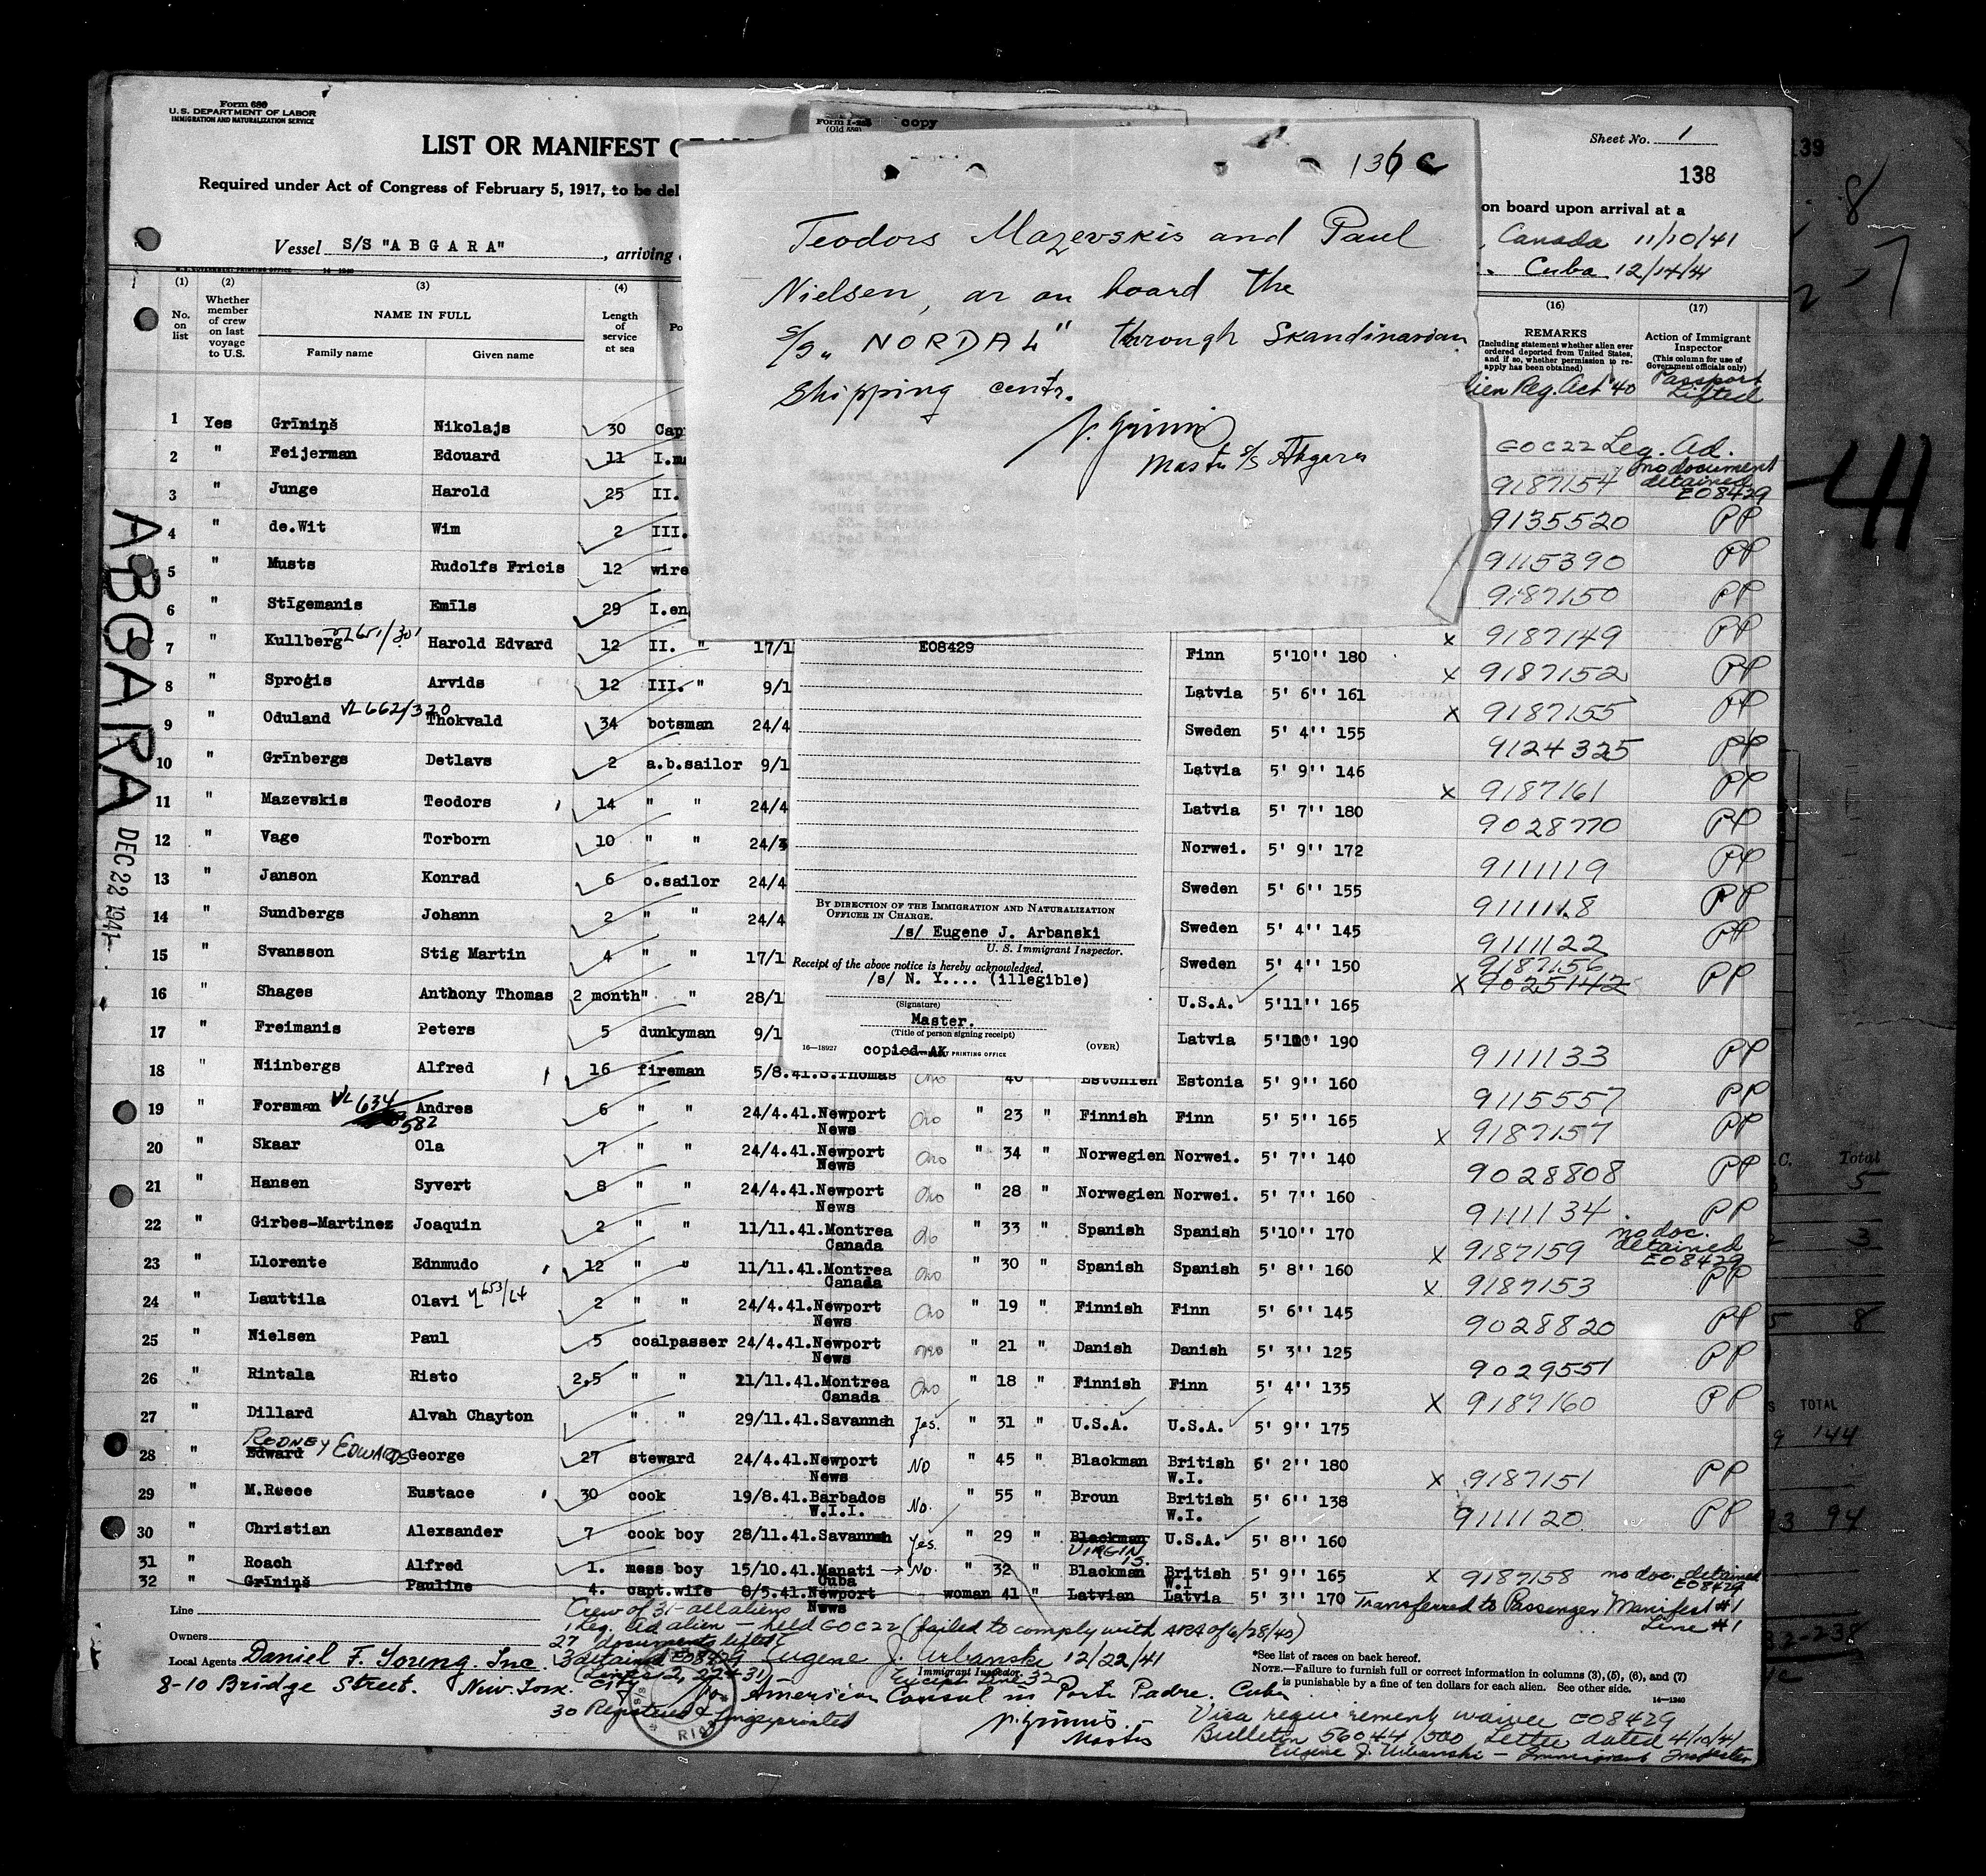 Form 680
U.S. DEPARTMENT OF LABOR
IMMIGRATION AND NATURALIZATION SERVICE
Form I-259 copy
(Old 689)
Sheet No. 1
138
139
LIST OR MANIFEST OF
Required under Act of Congress of February 5, 1917, to be del
on board upon arrival at a
Vessel S/S "ABGARA", arriving
, Canada 11/10/41
Cuba 12/14/41
136 c
Teodors Mazevskis and Paul
Nielsen, ar on board the
S/S „NORDAL" through Skandinavian
Shipping centr.
N. Grinins
Master S/S Abgara
(1) (2) (3) (4) (16) (17)
No. on list
Whether member of crew on last voyage to U.S.
NAME IN FULL
Family name Given name
Length of service at sea
Po
REMARKS
(Including statement whether alien ever ordered deported from United States, and if so, whether permission to reapply has been obtained)
Action of Immigrant Inspector
(This column for use of Government officials only)
lien Reg. Act '40 Passport Lifted
1 Yes Grīniņš Nikolajs 30 Cap EOC22 Leg. Ad.
2 " Feijerman Edouard 11 I.m 9187154 no document detained E08429
3 " Junge Harold 25 II. 9135520 PP
4 " de.Wit Wim 2 III. 9115390 PP
5 " Musts Rudolfs Fricis 12 wire 9187150 PP
6 " Stīgemanis Emīls 29 I.en x 9187149 PP
7 " Kullberg Harold Edvard 12 II. " 17/1 Finn 5'10'' 180 x 9187152 PP
8 " Sproģis Arvids 12 III. " 9/1 Latvia 5' 6'' 161 x 9187155 PP
9 " Oduland VL662/320 Thokvald 34 botsman 24/4 Sweden 5' 4'' 155 9124325 PP
10 " Grīnbergs Detlavs 2 a.b.sailor 9/1 Latvia 5' 9'' 146 x 9187161 PP
11 " Mazevskis Teodors 14 " " 24/4 Latvia 5' 7'' 180 9028770 PP
12 " Vage Torborn 10 " " 24/3 Norwei. 5' 9'' 172 9111119 PP
13 " Janson Konrad 6 o.sailor 24/4 Sweden 5' 6'' 155 9111118 PP
14 " Sundbergs Johann 2 " " 24/4 Sweden 5' 4'' 145 9111122 PP
15 " Svansson Stig Martin 4 " " 17/1 Sweden 5' 4'' 150 9187156 x 9025142 PP
16 " Shages Anthony Thomas 2 month" " 28/1 U.S.A. 5'11'' 165
17 " Freimanis Peters 5 dunkyman 9/1 Latvia 5'10' 190 9111133 PP
18 " Niinbergs Alfred 16 fireman 5/8.41.S.Thomas no 40 Estonien Estonia 5' 9'' 160 9115557 PP
19 " Forsman VL 634 582 Andres 6 " " 24/4.41.Newport News no " 23 " Finnish Finn 5' 5'' 165 x 9187157 PP
20 " Skaar Ola 7 " " 24/4.41.Newport News no " 34 " Norwegien Norwei. 5' 7'' 140 9028808 PP
21 " Hansen Syvert 8 " " 24/4.41.Newport News no " 28 " Norwegien Norwei. 5' 7'' 160 9111134 PP
22 " Girbes-Martinez Joaquin 2 " " 11/11.41.Montrea Canada no " 33 " Spanish Spanish 5'10'' 170 x 9187159 no doc. detained E08429
23 " Llorente Ednmudo 12 " " 11/11.41.Montrea Canada no " 30 " Spanish Spanish 5' 8'' 160 x 9187153 PP
24 " Lauttila Olavi 653/64 2 " " 24/4.41.Newport News no " 19 " Finnish Finn 5' 6'' 145 9028820 PP
25 " Nielsen Paul 5 coalpasser 24/4.41.Newport News no " 21 " Danish Danish 5' 3'' 125 9029551 PP
26 " Rintala Risto 2,5 " " 11/11.41.Montrea Canada no " 18 " Finnish Finn 5' 4'' 135 x 9187160 PP
27 " Dillard Alvah Chayton " " 29/11.41.Savannah Yes. " 31 " U.S.A. U.S.A. 5' 9'' 175
28 " Edward RODNEY EDWARDS George 27 steward 24/4.41.Newport News No " 45 " Blackman British W.I. 6' 2'' 180 x 9187151 PP
29 " M.Reece Eustace 30 cook 19/8.41.Barbados W.I.I. No. " 55 " Broun British W.I. 5' 6'' 138 9111120 PP
30 " Christian Alexsander 7 cook boy 28/11.41.Savannah Yes. " 29 " Blackman VIRGIN IS. U.S.A. 5' 8'' 160
31 " Roach Alfred 1. mess boy 15/10.41.Manati Cuba No. " 32 " Blackman British W.I 5' 9'' 165 x 9187158 no doc. detained E08429
32 " Grīniņš Pauline 4. capt.wife 8/5.41.Newport News woman 41 " Latvian Latvia 5' 3'' 170 Transferred to Passenger Manifest #1 Line #1
E08429
BY DIRECTION OF THE IMMIGRATION AND NATURALIZATION OFFICER IN CHARGE.
/s/ Eugene J. Arbanski
U. S. Immigrant Inspector.
Receipt of the above notice is hereby acknowledged.
/s/ N. Y.... (illegible)
(Signature)
Master.
(Title of person signing receipt)
16—18927 copied AK PRINTING OFFICE (OVER)
ABGARA
DEC 22 1941
41
Line
Owners
Local Agents Daniel F. Young. Inc.
8-10 Bridge Street. New York City
Crew of 31 - all aliens
1 Leg. Ad alien - held EOC22 (failed to comply with ARA of 6/28/40)
27 documents lifted
3 detained E08429 Eugene J. Urbanski 12/22/41
(Lines 2, 22 + 31) Immigrant Inspector.
Except Line 32
for American Consul in Porto Padre. Cuba
30 Registered & fingerprinted
N. Grinins. Master
*See list of races on back hereof.
NOTE.—Failure to furnish full or correct information in columns (3), (5), (6), and (7)
is punishable by a fine of ten dollars for each alien. See other side.
14—1240
Visa requirement waived E08429
Bulletin 56044/500 Letter dated 4/10/41
Eugene J. Urbanski - Immigrant Inspector
C. Total
5
3
8
TOTAL
144
94